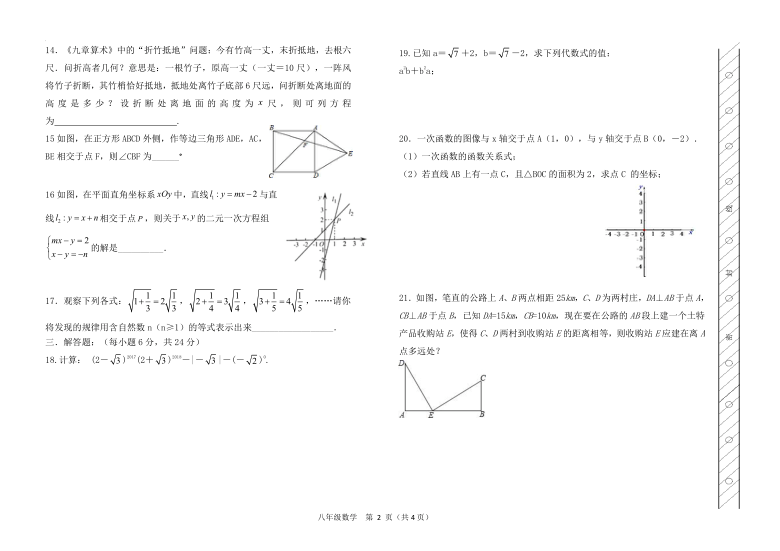 14.《九章算术》中的“折竹抵地”问题：今有竹高一丈，末折抵地，去根六
尺．问折高者几何？意思是：一根竹子，原高一丈（一丈=10 尺），一阵风
将竹子折断，其竹梢恰好抵地，抵地处离竹子底部 6 尺远，问折断处离地面的
高度是多少？设折断处离地面的高度为 x 尺，则可列方程
为______________.
15 如图，在正方形 ABCD 外侧，作等边三角形 ADE，AC，
BE 相交于点 F，则∠CBF 为______°
B A F E C D
16 如图，在平面直角坐标系 xOy 中，直线 l₁：y = mx－2 与直
线 l₂：y = x＋n 相交于点 P，则关于 x, y 的二元一次方程组
{mx－y＝2
x－y＝－n 的解是__________．
y l₁ l₂ P 3 2 1 -3 -2 -1 O 1 2 3 x
17．观察下列各式：√(1+1/3)=2√(1/3)，√(2+1/4)=3√(1/4)，√(3+1/5)=4√(1/5)，……请你
将发现的规律用含自然数 n（n≥1）的等式表示出来__________________．
三．解答题：（每小题 6 分，共 24 分）
18.计算： (2－√3)²⁰¹⁷(2＋√3)²⁰¹⁸－|－√3|－(－√2)⁰.
19.已知 a＝√7＋2，b＝√7－2，求下列代数式的值：
a²b＋b²a；
20．一次函数的图像与 x 轴交于点 A（1，0），与 y 轴交于点 B（0，－2）．
（1）一次函数的函数关系式；
（2）若直线 AB 上有一点 C，且△BOC 的面积为 2，求点 C 的坐标；
y 4 3 2 1 -4 -3 -2 -1 0 1 2 3 4 x -1 -2 -3 -4
21．如图，笔直的公路上 A、B 两点相距 25km，C、D 为两村庄，DA⊥AB 于点 A，
CB⊥AB 于点 B，已知 DA=15km，CB=10km，现在要在公路的 AB 段上建一个土特
产品收购站 E，使得 C、D 两村到收购站 E 的距离相等，则收购站 E 应建在离 A
点多远处？
D C A E B
八年级数学 第 2 页（共 4 页）
封
密